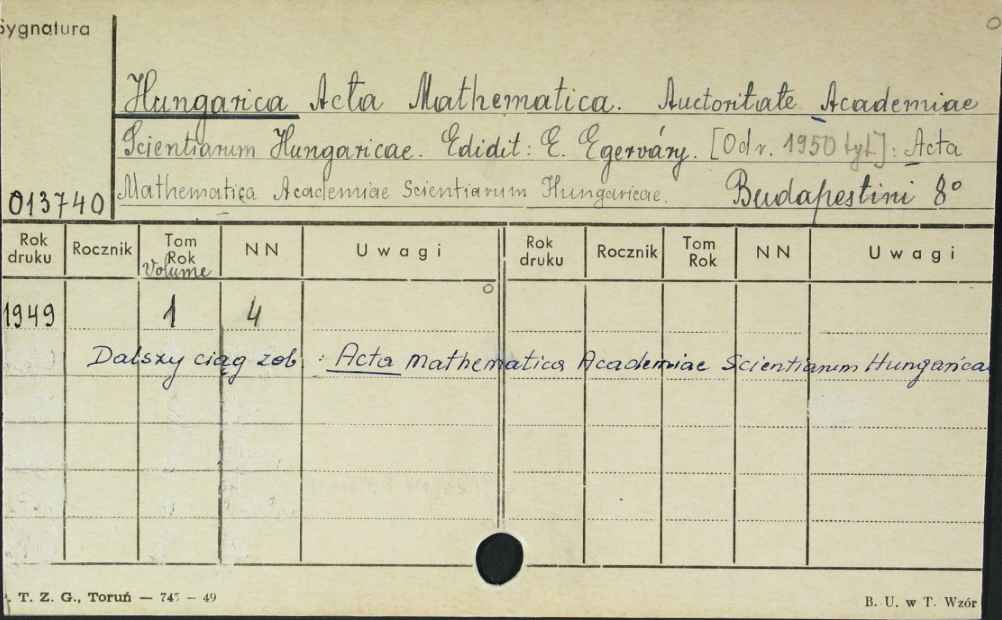 Sygnatura
Hungarica Acta Mathematica. Auctoritate Academiae
Scientiarum Hungaricae. Edidit: E. Egerváry. [Od r. 1950 tyt.]: Acta
Mathematica Academiae Scientiarum Hungaricae. Budapestini 8°
013740
Rok druku Rocznik Tom Rok Volume NN Uwagi Rok druku Rocznik Tom Rok NN Uwagi
1949 1 4
Dalszy ciąg zob : Acta Mathematica Academiae Scientiarum Hungarica
T. Z. G., Toruń — 747 — 49
B. U. w T. Wzór